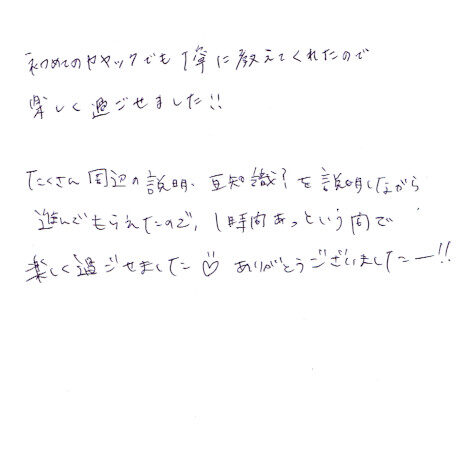 初めてのカヤックでも丁寧に教えてくれたので
楽しく過ごせました!!
たくさん周辺の説明、豆知識?を説明しながら
進んでもらえたので、1時間あっという間で
楽しく過ごせました♡ ありがとうございましたー!!